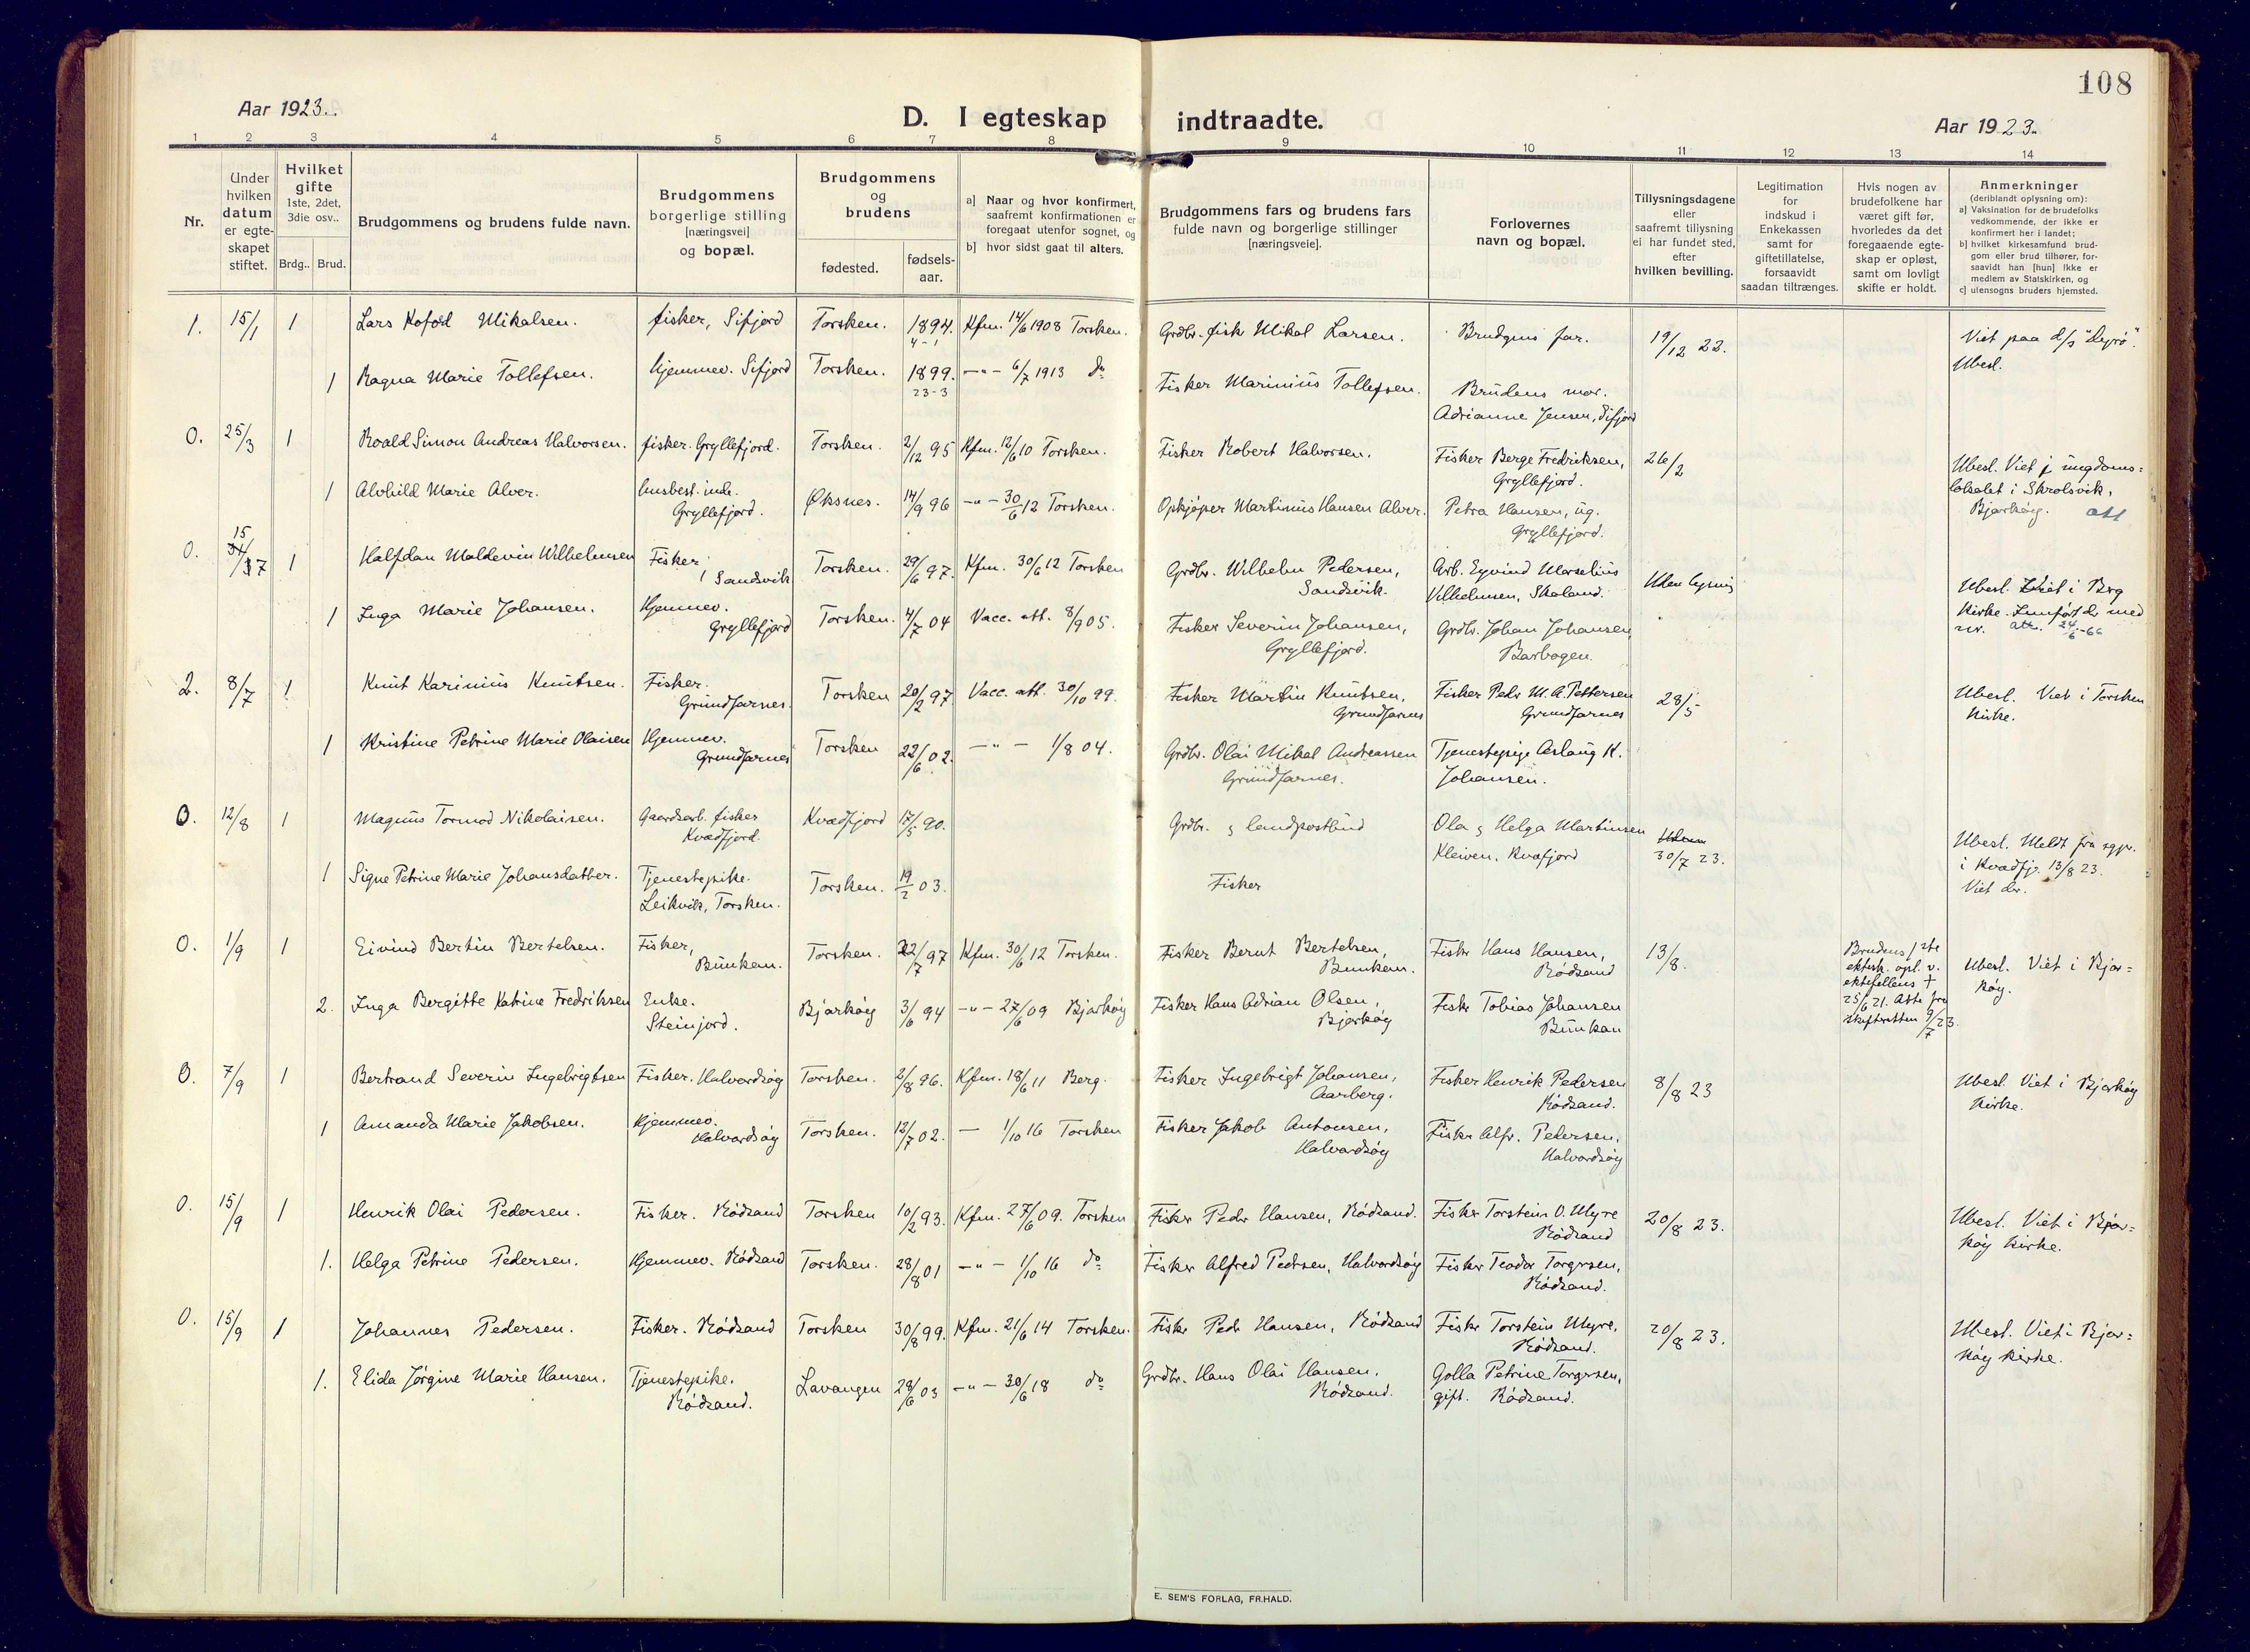 108
Aar 1923.
D. I egteskap indtraadte.
Aar 1923.
1 2 3 4 5 6 7 8 9 10 11 12 13 14
Nr.
Under hvilken datum er egte-skapet stiftet.
Hvilket gifte 1ste, 2det, 3die osv..
Brdg.. Brud.
Brudgommens og brudens fulde navn.
Brudgommens borgerlige stilling [næringsvei] og bopæl.
Brudgommens og brudens
fødested.
fødsels-aar.
a] Naar og hvor konfirmert, saafremt konfirmationen er foregaat utenfor sognet, og
b] hvor sidst gaat til alters.
Brudgommens fars og brudens fars fulde navn og borgerlige stillinger [næringsveie].
Forlovernes navn og bopæl.
Tillysningsdagene eller saafremt tillysning ei har fundet sted, efter hvilken bevilling.
Legitimation for indskud i Enkekassen samt for giftetillatelse, forsaavidt saadan tiltrænges.
Hvis nogen av brudefolkene har været gift før, hvorledes da det foregaaende egte-skap er opløst, samt om lovligt skifte er holdt.
Anmerkninger (deriblandt oplysning om):
a] Vaksination for de brudefolks vedkommende, der ikke er konfirmert her i landet;
b] hvilket kirkesamfund brud-gom eller brud tilhører, for-saavidt han [hun] ikke er medlem av Statskirken, og
c] utensogns bruders hjemsted.
1. 15/1 1 Lars Kofod Mikalsen. fisker, Sifjord Torsken. 1894. 4-1 Kfm. 14/6 1908 Torsken. Grdbr. fisk Mikal Larsen. Brudgms far. 19/12 22. Viet paa d/s "Dyrö".
Ubesl.
1 Ragna Marie Tollefsen. hjemmev. Sifjord Torsken. 1899. 23-3 -"- 6/7 1913 do Fisker Marinius Tollefsen. Brudens mor.
Adrianne Jensen, Sifjord
0. 25/3 1 Roald Simon Andreas Halvorsen. fisker. Gryllefjord. Torsken. 2/12 95 Kfm. 12/6 10 Torsken. Fisker Robert Halvorsen. Fisker Berge Fredriksen,
Gryllefjord. 26/2 Ubesl. Viet i ungdoms=
lokalet i Skrolsvik,
Bjarköy. att
1 Alvhild Marie Alver. husbest. inde.
Gryllefjord. Øksnes. 14/9 96 -"- 30/6 12 Torsken. Opkjøper Martinius Hansen Alver. Petra Hansen, ug.
Gryllefjord.
0. 15/7 1 Halfdan Maldevin Wilhelmsen Fisker,
Sandsvik Torsken. 29/6 97. Kfm. 30/6 12 Torsken Grdbr. Wilhelm Pedersen,
Sandsvik. Arb. Eyvind Marselius
Vilhelmsen, Skaland. Uten lysning Ubesl. Viet i Berg
Kirke. Innført av med
att. 24/6-66
1 Inga Marie Johansen. Hjemmev.
Gryllefjord Torsken. 4/7 04 Vacc. att. 8/9 05. Fisker Severin Johansen,
Gryllefjord. Grdbr. Johan Johansen,
Barbogen.
2. 8/7 1 Knut Karinius Knutsen. Fisker.
Grundfarnes. Torsken 20/2 97. Vacc. att. 30/10 99. Fisker Martin Knutsen,
Grundfarnes Fisker Pedr M. A. Pettersen
Grundfarnes 28/5 Ubesl. Viet i Torsken
Kirke.
1 Kristine Petrine Marie Olaisen Hjemmev.
Grundfarnes Torsken 22/6 02. -"- 1/8 04. Grdbr. Olai Mikal Andreassen
Grundfarnes. Tjenestepige Aslaug K.
Johansen.
0. 12/8 1 Magnus Tormod Nikolaisen. Gaardsarb. fisker
Kvædfjord. Kvædfjord 17/5 90. Grdbr. & landpostbud Ola & Helga Martinsen
Kleiven, Kvæfjord Uten
30/7 23. Ubesl. Meldt fra sgpr.
i Kvædfj. 13/8 23.
Viet der.
1 Signe Petrine Marie Johansdatter. Tjenestepike.
Leikvik, Torsken. Torsken. 19/2 03. Fisker
0. 1/9 1 Eivind Bertin Bertelsen. Fisker,
Bunkan. Torsken. 22/7 97 Kfm. 30/6 12 Torsken. Fisker Bernt Bertelsen,
Bunkan. Fiskr Hans Hansen,
Rödsand 13/8. Brudens 1ste
ektesk. opl. v.
ektefellens †
25/6 21. Atte fra
skifteretten 9/7 23. Ubesl. Viet i Bjar=
köy.
2. Inga Bergitte Katrine Fredriksen Enke.
Steinjord. Bjarköy 3/6 94 -"- 27/6 09 Bjarköy Fisker Hans Adrian Olsen,
Bjarköy Fiskr Tobias Johansen
Bunkan
0. 7/9 1 Bertrand Severin Ingebrigtsen Fisker. Halvardsöy Torsken. 2/8 96. Kfm. 18/6 11 Berg. Fisker Ingebrigt Johansen,
Aarberg. Fisker Henrik Pedersen
Rödsand. 8/8 23 Ubesl. Viet i Bjarköy
Kirke.
1 Amanda Marie Jakobsen. Hjemmev.
Halvardsöy Torsken. 12/7 02. - 1/10 16 Torsken Fisker Jakob Antonsen,
Halvardsöy Fiskr Alfr. Pedersen,
Halvardsöy
0. 15/9 1 Henrik Olai Pedersen. Fisker. Rödsand Torsken 10/2 93. Kfm. 27/6 09. Torsken Fiskr Pedr Hansen, Rödsand. Fiskr Torstein O. Myre
Rödsand 20/8 23. Ubesl. Viet i Bjar=
köy Kirke.
1. Helga Petrine Pedersen. Hjemmev. Rödsand Torsken. 28/8 01 -"- 1/10 16 do Fisker Alfred Pedrsen, Halvardsöy Fiskr Teodor Torgrsen,
Rödsand.
0. 15/9 1 Johannes Pedersen. Fisker. Rödsand Torsken 30/8 99. Kfm. 21/6 14 Torsken. Fiskr Pedr Hansen, Rödsand Fiskr Torstein Myre,
Rödsand. 20/8 23. Ubesl. Viet i Bjar=
köy kirke.
1. Elida Jörgine Marie Hansen. Tjenestepike.
Rödsand. Lavangen 28/6 03 -"- 30/6 18 do Grdbr. Hans Olai Hansen.
Rödsand. Golla Petrine Torgrsen,
gift. Rödsand.
E. SEM'S FORLAG, FR.HALD.